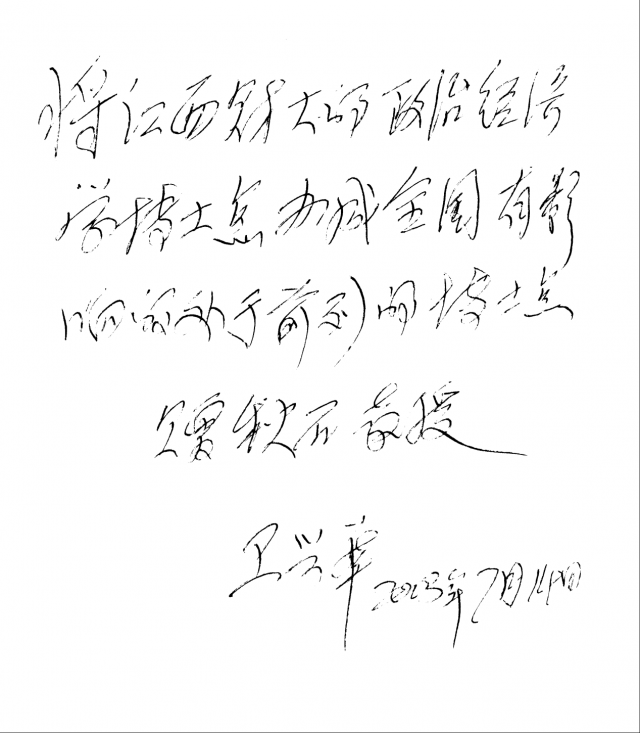 将江西财大的政治经济
学博士点办成全国有影
响的处于前列的博士点
赠秋石教授
卫兴华 2003年7月14日